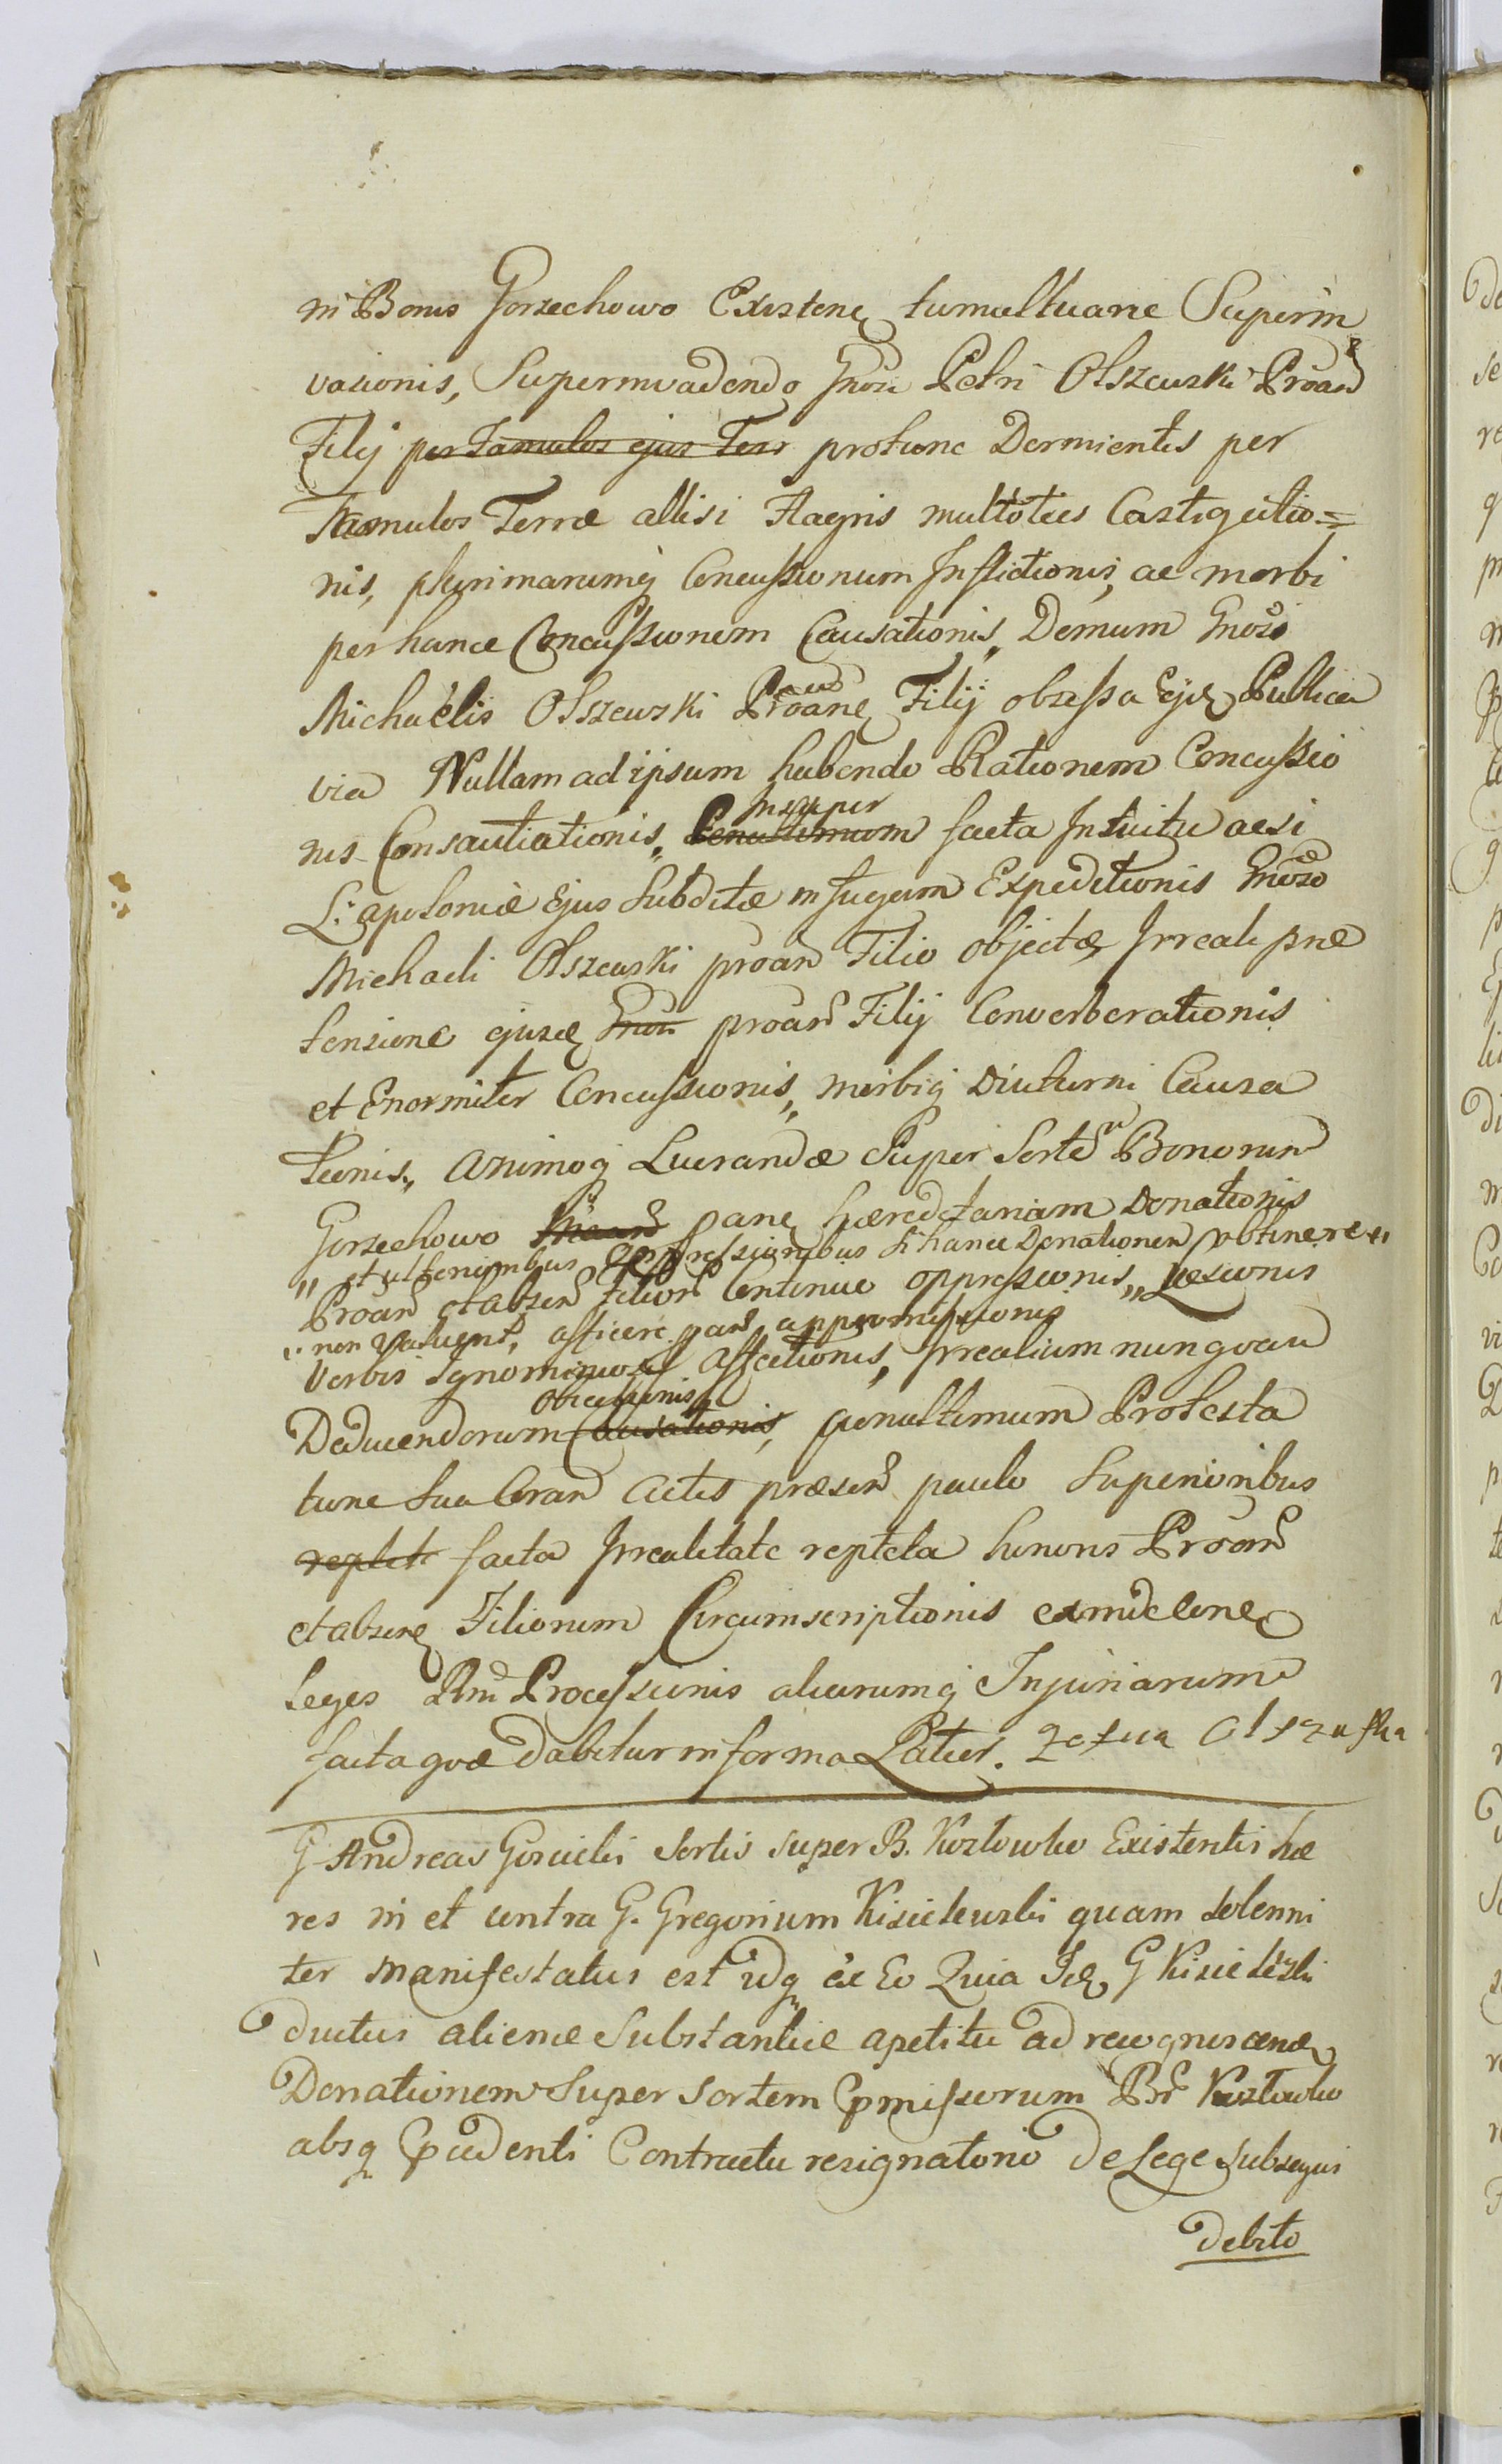 in Bonis Gorzechowo Existen tumultuarie Superin
vasionis, Superinvadendo Gnosi Petri Olszewski Proan
Filij per Famulos ejus Terr protunc Dormientis per
Famulos Terræ allisi Flagris multoties Castigatio=
nis, plurimarumq Concussionum Inflictionis, ac morbi
per hance Concussionem Causationis, Demum Gnoso
Michaelis Olszewski Proan Filij obsessa Ejd Publica
via Nullam ad ipsum habendo Rationem Concussio
nis Consautiationis, Penultimum Insuper facta Intuitu acsi
L: apoloniæ Ejus Subditæ in fugam Expeditionis Gnoso
Michaeli Olszewski proan Filio objectæ Irreali præ
tensione ejusd Gnosi proan Filij Converberationis
et Enormiter Concussionis, morbiq Diuturni Causa
tionis, animoq Lucrandæ Super Sorte Bonorum
Gorzechowo pane hæreditariam Donationis
" et ulterioribus oppressionibus si hance Donationem obtinere "
Proan et absen Filior Continuo oppressionis, Læsionis
" non valuent, afficere pan appromissionis
Verbis Ignominiosis affectionis, Irrealium nunquam
Deducendorum Causationis, obiectionis penultimum Protesta
tione sua Coran actis præsen paulo Superioribus
replet facta Irrealitate repleta hunons Proan
et absen Filiorum Circumscriptionis
Leges Rni Processionis aliarumq Injuriarum
facta quæ dabitur in forma Latior.
G Andreas Gorucki Sortis super B. Kozłowko Existentis hæ
res in et contra G. Gregorium Kisielewski quam solenni
ter manifestatus est idq ex Eo Quia Id G Kisielewski
ductus alienæ Substantiæ apetitu ad recognoscend
Donationem Super sortem præmissorum Br Kozłowko
absq præcedenti Contractu resignatorio de Lege Subsequi
debito